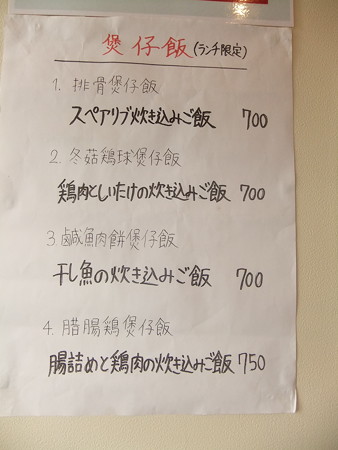 煲仔飯(ランチ限定)
1. 排骨煲仔飯
スペアリブ炊き込みご飯 700
2. 冬菇鶏球煲仔飯
鶏肉としいたけの炊き込みご飯 700
3. 鹹魚肉餅煲仔飯
干し魚の炊き込みご飯 700
4. 腊腸鶏煲仔飯
腸詰めと鶏肉の炊き込みご飯 750